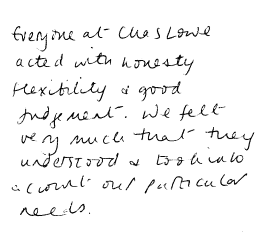 Everyone at Chas Lowe
acted with honesty
flexibility & good
judgement. We felt
very much that they
understood & took into
account our particular
needs.